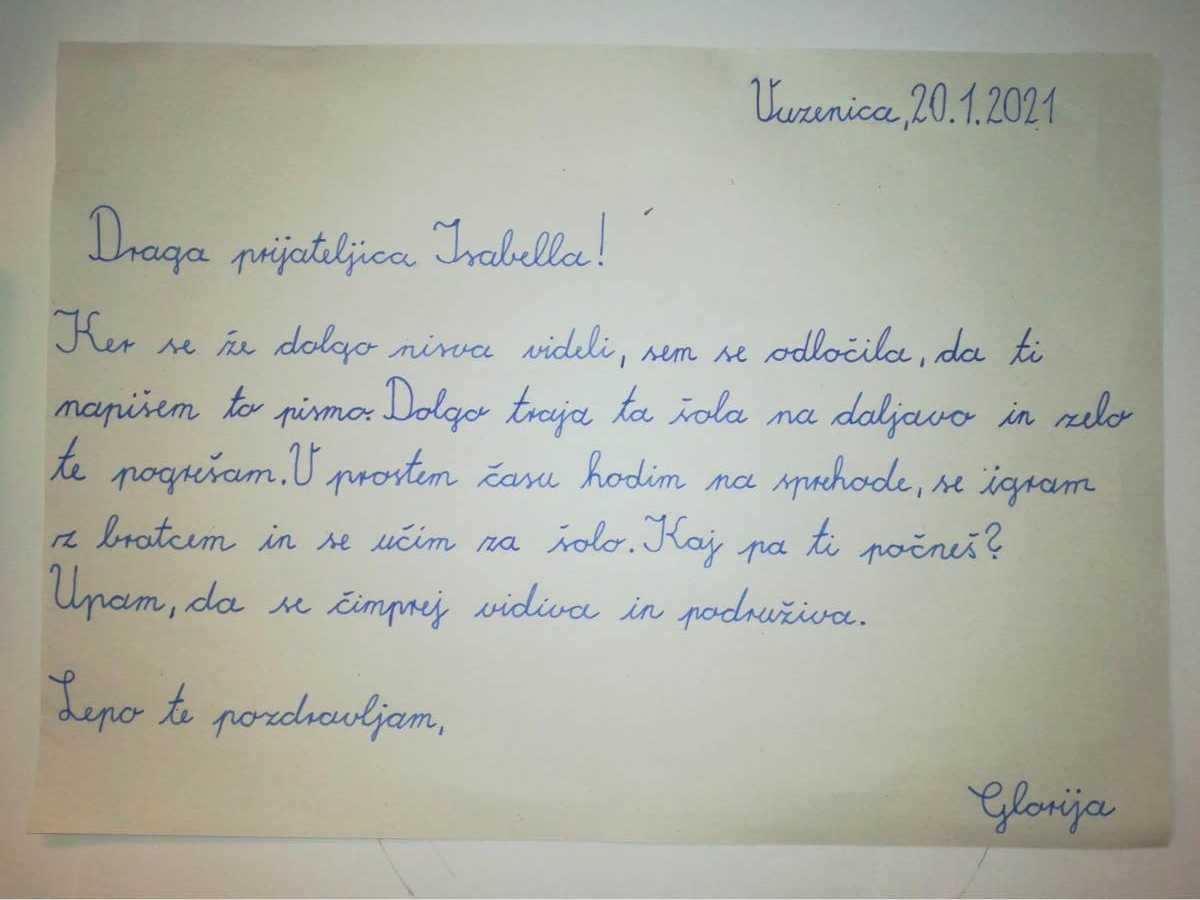 Vuzenica,20.1.2021
Draga prijateljica Isabella!
Ker se že dolgo nisva videli, sem se odločila, da ti
napišem to pismo. Dolgo traja ta šola na daljavo in zelo
te pogrešam. V prostem času hodim na sprehode, se igram
z bratcem in se učim za šolo. Kaj pa ti počneš?
Upam, da se čimprej vidiva in podruživa.
Lepo te pozdravljam,
Glorija